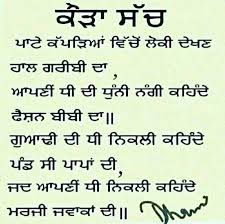 ਕੌੜਾ ਸੱਚ
ਪਾਟੇ ਕੱਪੜਿਆਂ ਵਿੱਚੋਂ ਲੋਕੀ ਦੇਖਣ
ਹਾਲ ਗਰੀਬੀ ਦਾ ,
ਆਪਣੀਂ ਧੀ ਦੀ ਧੁੰਨੀ ਨੰਗੀ ਕਹਿੰਦੇ
ਫੈਸ਼ਨ ਬੀਬੀ ਦਾ॥
ਗੁਆਢੀ ਦੀ ਧੀ ਨਿਕਲੀ ਕਹਿੰਦੇ
ਪੰਡ ਸੀ ਪਾਪਾਂ ਦੀ,
ਜਦ ਆਪਣੀਂ ਧੀ ਨਿਕਲੀ ਕਹਿੰਦੇ
ਮਰਜੀ ਜਵਾਕਾਂ ਦੀ॥